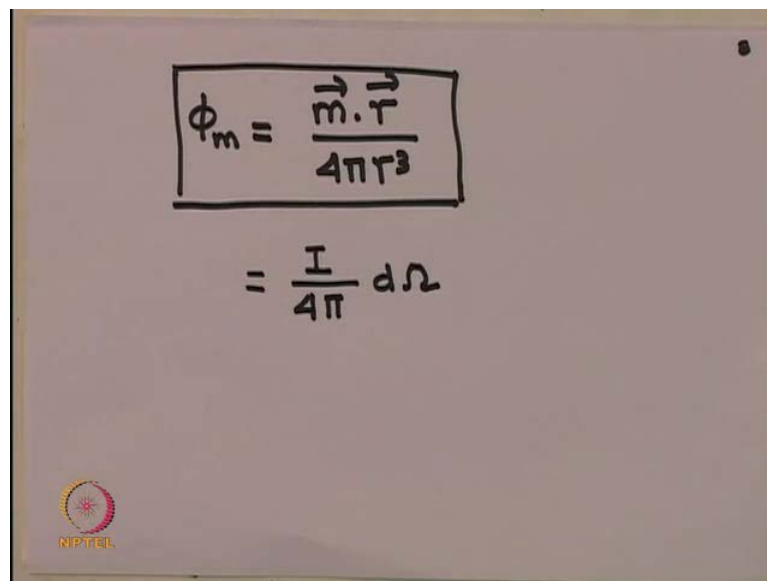 ϕₘ = m⃗ . r⃗ / 4πr³
= I / 4π dΩ
NPTEL